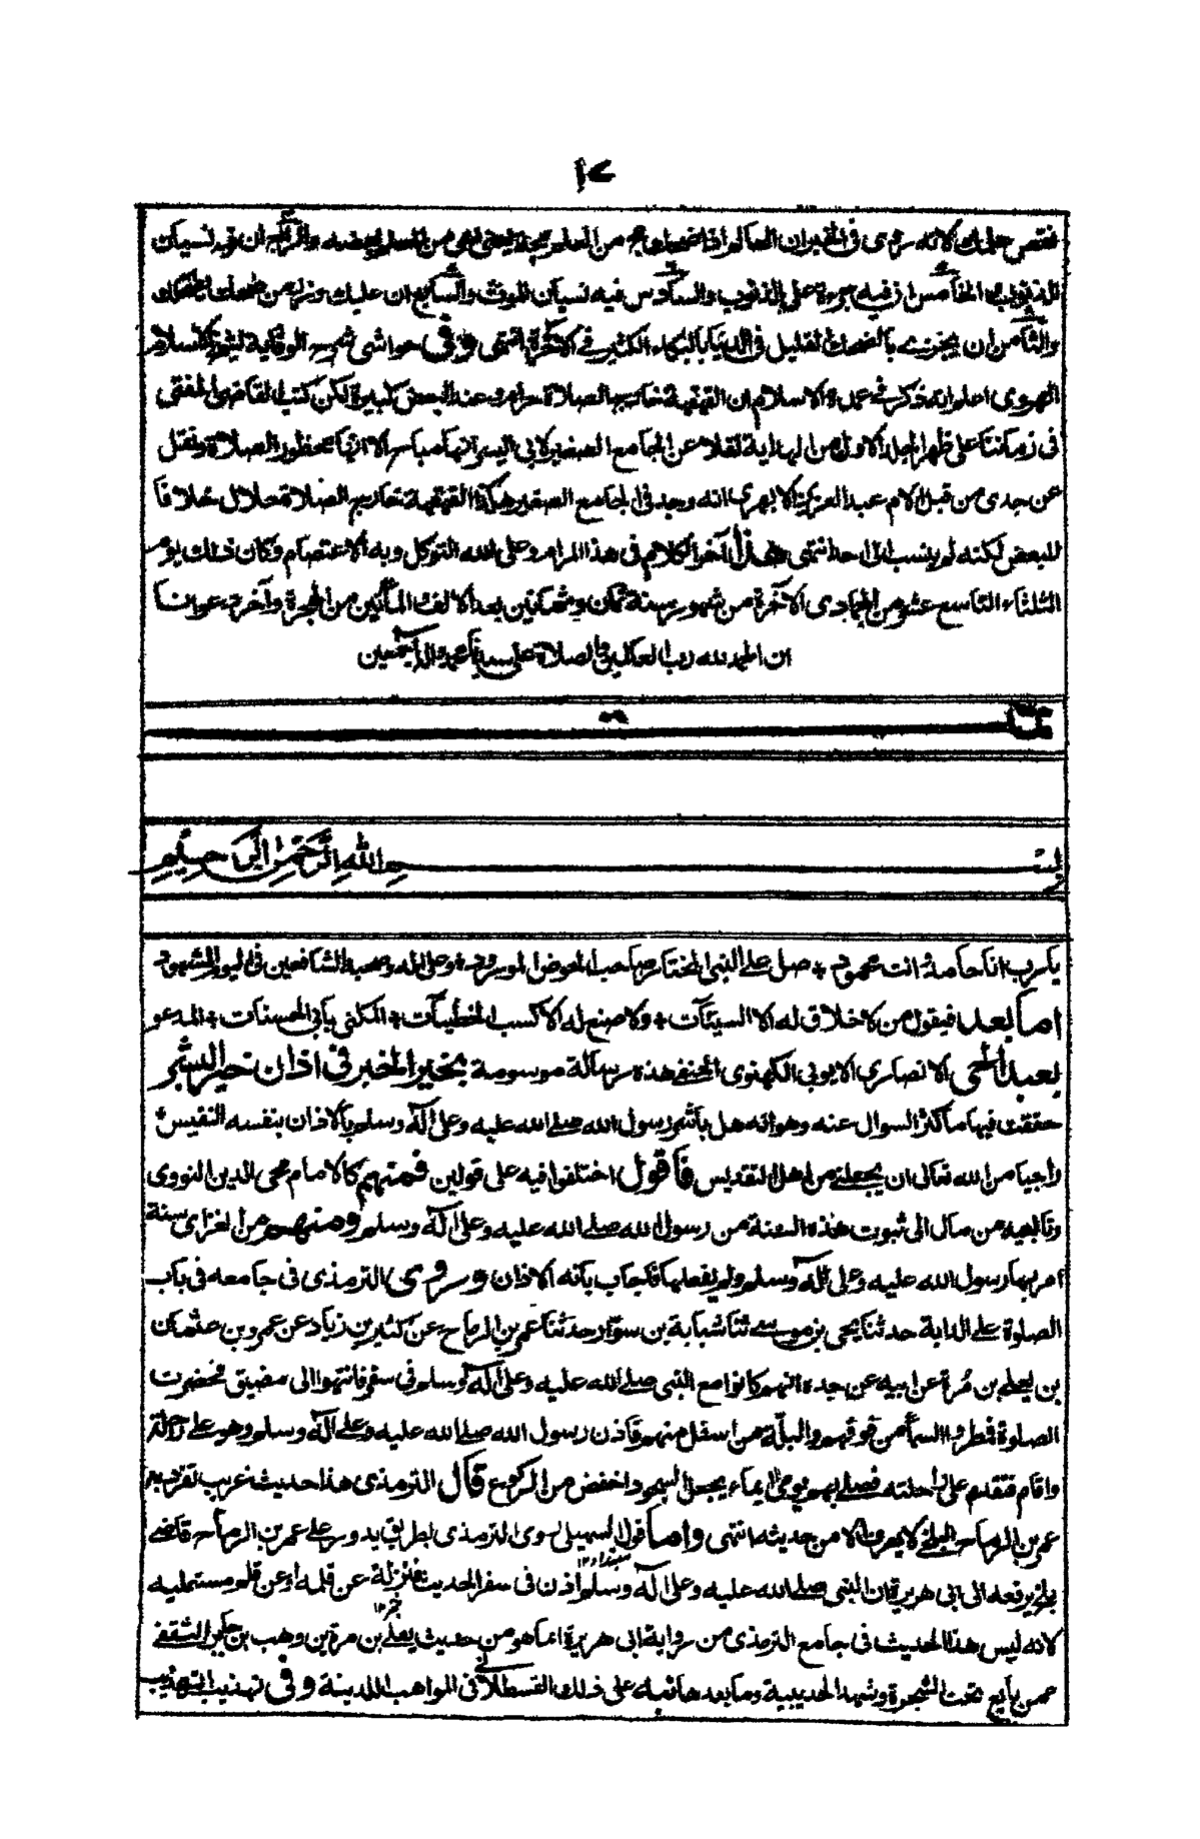 ١٧
فنقص علمك لانه روى في الخبر ان العالم اذا ضحك مج من العلم مجة يعنى رمى من العلم بعضه والرابع ان فيه نسيان
الذنوب والخامس ان فيه جرءة على الذنوب والسادس فيه نسيان الموت والسابع ان عليك وزر من ضحك بضحكك
والثامن ان يجزى بالضحك القليل في الدنيا بالبكاء الكثير في الآخرة انتهى وفي حواشى شرح الوقاية لشيخ الاسلام
الهروى اعلم انه ذكر في عمدة الاسلام ان القهقهة خارج الصلاة حرام وعند البعض كبيرة لكن كتب القاضى المفتى
في زماننا على ظهر الجلد الاول من الهداية نقلا عن الجامع الصغير لابي اليسر انها مباح الا انها محظور الصلاة ونقل
عن جدى من قبل الام عبد العزيز الابهرى انه وجد في الجامع الصغير هكذا القهقهة خارج الصلاة حلال خلافا
للبعض لكنه لم ينسب الى احد انتهى هذا آخر الكلام في هذا المرام وعلى الله التوكل وبه الاعتصام وكان ذلك يوم
الثلثاء التاسع عشر من الجمادى الآخرة من شهور سنة ثمان وثمانين بعد الالف والمأتين من الهجرة وآخر دعوانا
ان الحمد لله رب العالمين والصلاة على سيدنا محمد وآله اجمعين
تمت
بسم الله الرحمن الرحيم
يا رب انا حامد انت محمود * صل على النبى المختار صاحب الحوض المورود * وعلى اله وصحبه الشافعين في اليوم المشهود
اما بعد فيقول من لا خلاق له الا السيئات * ولا صنع له الا كسب الخطيئات * المكنى بابى الحسنات * المدعو
بعبد الحى الانصارى الايوبي اللكهنوى الحنفى هذه رسالة موسومة بخير الخبر في اذان خير البشر
حققت فيها ما كثر السوال عنه وهو انه هل باشر رسول الله صلى الله عليه وعلى آله وسلم بالاذان بنفسه النفيس *
راجيا من الله تعالى ان يجعلنى من اهل التقديس فأقول اختلفوا فيه على قولين فمنهم كالامام محى الدين النووى
وتابعيه من مال الى ثبوت هذه السنة من رسول الله صلى الله عليه وعلى آله وسلم ومنهم من الغزى سنة
امر بها رسول الله عليه وعلى آله وسلم ولم يفعلها فاجاب بانه الاذان وروى الترمذى في جامعه في باب
الصلوة على الدابة حدثنا يحى بن موسى ثنا شبابة بن سوار حدثنا عمر بن الرماح عن كثير بن زياد عن عمرو بن عثمان
بن يعلى بن مرة عن ابيه عن جده انهم كانوا مع النبى صلى الله عليه وعلى آله وسلم في سفر فانتهوا الى مضيق فحضرت
الصلوة فمطروا السماء من فوقهم والبلة من اسفل منهم فاذن رسول الله صلى الله عليه وعلى آله وسلم وهو على راحلته
واقام فتقدم على راحلته فصلى بهم يومى ايماء يجعل السجود اخفض من الركوع قال الترمذى هذا حديث غريب تفرد به
عمر بن الرماح البلخى لا يعرف الا من حديثه انتهى واما قول السهيلى روى الترمذى بطريق يدور على عمر بن الرماح قاضى
بلخ يرفعه الى ابى هريرة ان النبى صلى الله عليه وعلى آله وسلم اذن في سفر الحديث فنزلة عن قلمه او عن قلم مستمليه
لانه ليس هذا الحديث في جامع الترمذى من رواية ابى هريرة انما هو من حديث يعلى بن مرة بن وهب بن جابر الثقفى
ممن بايع تحت الشجرة وشهد الحديبية وما بعدها نبه على ذلك القسطلانى في المواهب اللدنية وفي تهذيب التهذيب